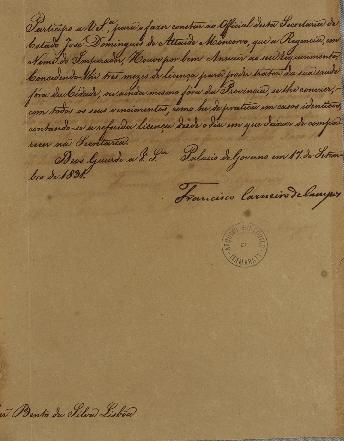 Participo a V. S.ª, para o fazer constar ao Official desta Secretaria de
Estado José Domingues de Attaide Moncorvo, que a Regencia, em
Nome do Imperador, Houve por bem Annuir ao seu Requerimento,
Concedendo-lhe tres mezes de licença para poder tratar da sua saude
fora da Cidade, ou ainda mesmo fora da Provincia, se lhe convier,
com todos os seus vencimentos, como he de pratica em casos identicos,
contando-se a referida licença desde o dia em que deixar de compa-
recer na Secretaria.
Deos Guarde a V. S.ª Palacio do Governo em 17 de Setem-
bro de 1831.
Francisco Carneiro de Campos
ARQUIVO HISTORICO
ITAMARATY
Bento da Silva Lisboa